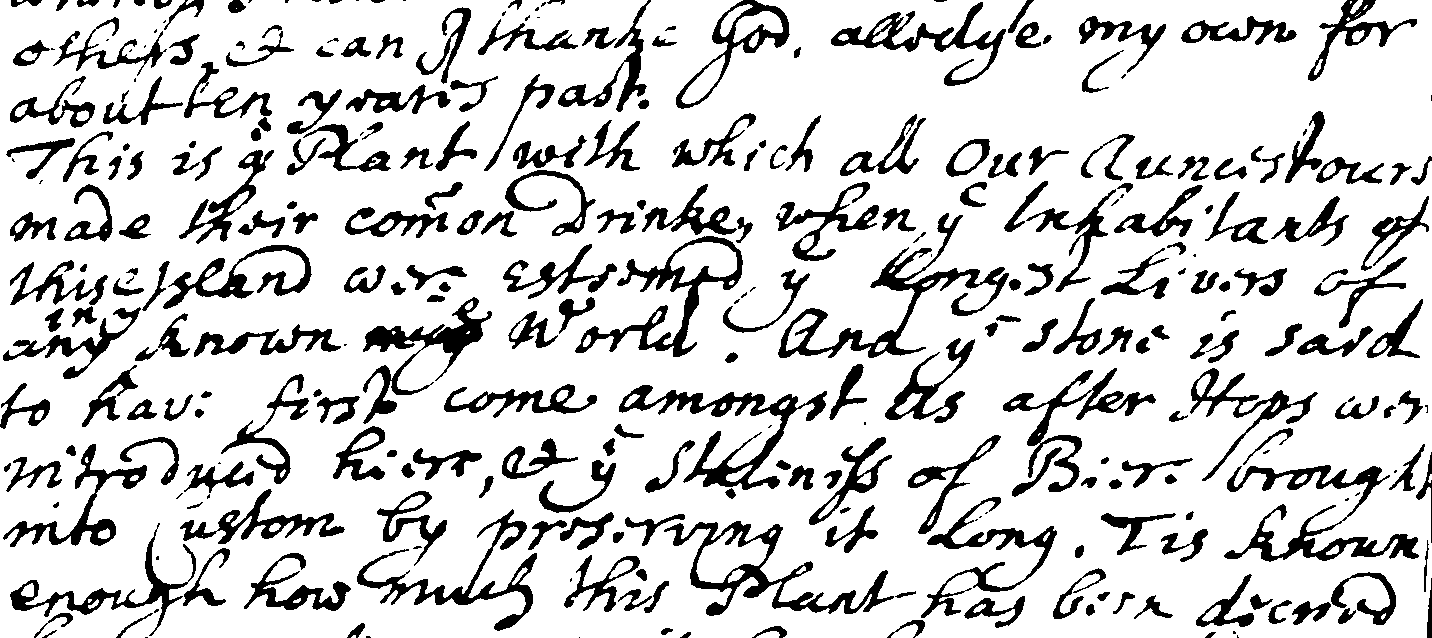 others, & can I thanke God, alledge my own for
about ten yeares past.
This is ye Plant with which all Our Auncestours
made their com̄on Drinke, when ye Inhabitants of
this Island were Esteemed ye Longest Livers of
in ye
any known World. And ye stone is said
to have first come amongst Us after Hops wer
introduced hiere, & ye Staleness of Biere brought
into Custom by preserving it Long. Tis known
enough how much this Plant has been decried